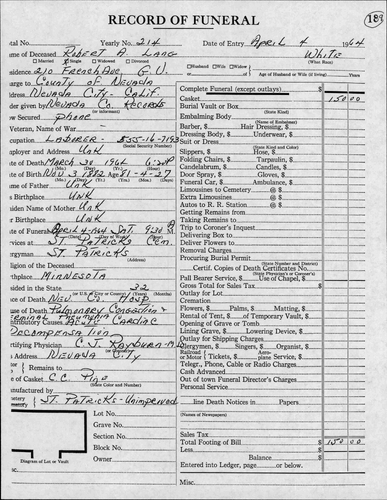 RECORD OF FUNERAL
189
tal No. Yearly No. 214 Date of Entry April 4 1964
me of Deceased Robert A. Lang White
Married Single Widowed Divorced (What Race)
esidence 210 French Ave. G.V. Husband Wife Widow Age of Husband or Wife (if living) Years
County of Nevada
ddress Nevada City - Calif.
der given by Nevada Co. Records
(or informant)
ow Secured Phone
Veteran, Name of War
cupation Laborer - 555-16-7193
(Social Security Number)
mployer and Address Unk
te of Death March 30 1964 6:30 P
te of Birth Nov 3 1882 Age 81-4-27
(Mo.) (Day) (Yr.) (Yrs.) (Mos.) (Days)
me of Father Unk
s Birthplace Unk
aiden Name of Mother Unk
r Birthplace Unk
te of Funeral April 4-1964 Sat. 930 A
rvices at St Patricks Cem.
rgyman St Patricks
(Address)
ligion of the Deceased
thplace Minnesota
sided in the State 32
ce of Death Nev. Co. Hosp
use of Death Pulmonary Congestion &
Terminal Pneumonia
ntributory Causes Acute Cardiac
Decompensation
rtifying Physician C J Rayburn-MD
s Address Nevada City
Remains to
e of Casket C.C. Pine
(State Color and Number)
anufactured by
St. Patricks - Unimproved
Lot No.
Grave No.
Section No.
Block No.
Owner
Diagram of Lot or Vault
Complete Funeral (except outlays) $
Casket 150 00
Burial Vault or Box
(State Kind)
Embalming Body
(Name of Embalmer)
Barber, $ Hair Dressing, $
Dressing Body, $ Underwear, $
Suit or Dress
(State Kind and Color)
Slippers, $ Hose, $
Folding Chairs, $ Tarpaulin, $
Candelabrum, $ Candles, $
Door Spray, $ Gloves, $
Funeral Car, $ Ambulance, $
Limousines to Cemetery @ $
Extra Limousines @ $
Autos to R. R. Station @ $
Getting Remains from
Taking Remains to
Trip to Coroner's Inquest
Delivering Box to
Deliver Flowers to
Removal Charges
Procuring Burial Permit
(State Number and District)
Certif. Copies of Death Certificates No.
(State Physician's or Coroner's)
Pall Bearer Service, $ Use of Chapel, $
Gross Total for Sales Tax $
Outlay for Lot
Cremation
Flowers, $ Palms, $ Matting, $
Rental of Tent, $ of Temporary Vault, $
Opening of Grave or Tomb
Lining Grave, $ Lowering Device, $
Outlay for Shipping Charges
Clergymen, $ Singers, $ Organist, $
Railroad or Motor Tickets, $ Aeroplane Service, $
Telegr., Phone, Cable or Radio Charges
Cash Advanced
Out of town Funeral Director's Charges
Personal Service
line Death Notices in Papers
(Names of Newspapers)
Sales Tax
Total Footing of Bill $ 150 00
Less
Balance $
Entered into Ledger, page or below.
Misc.